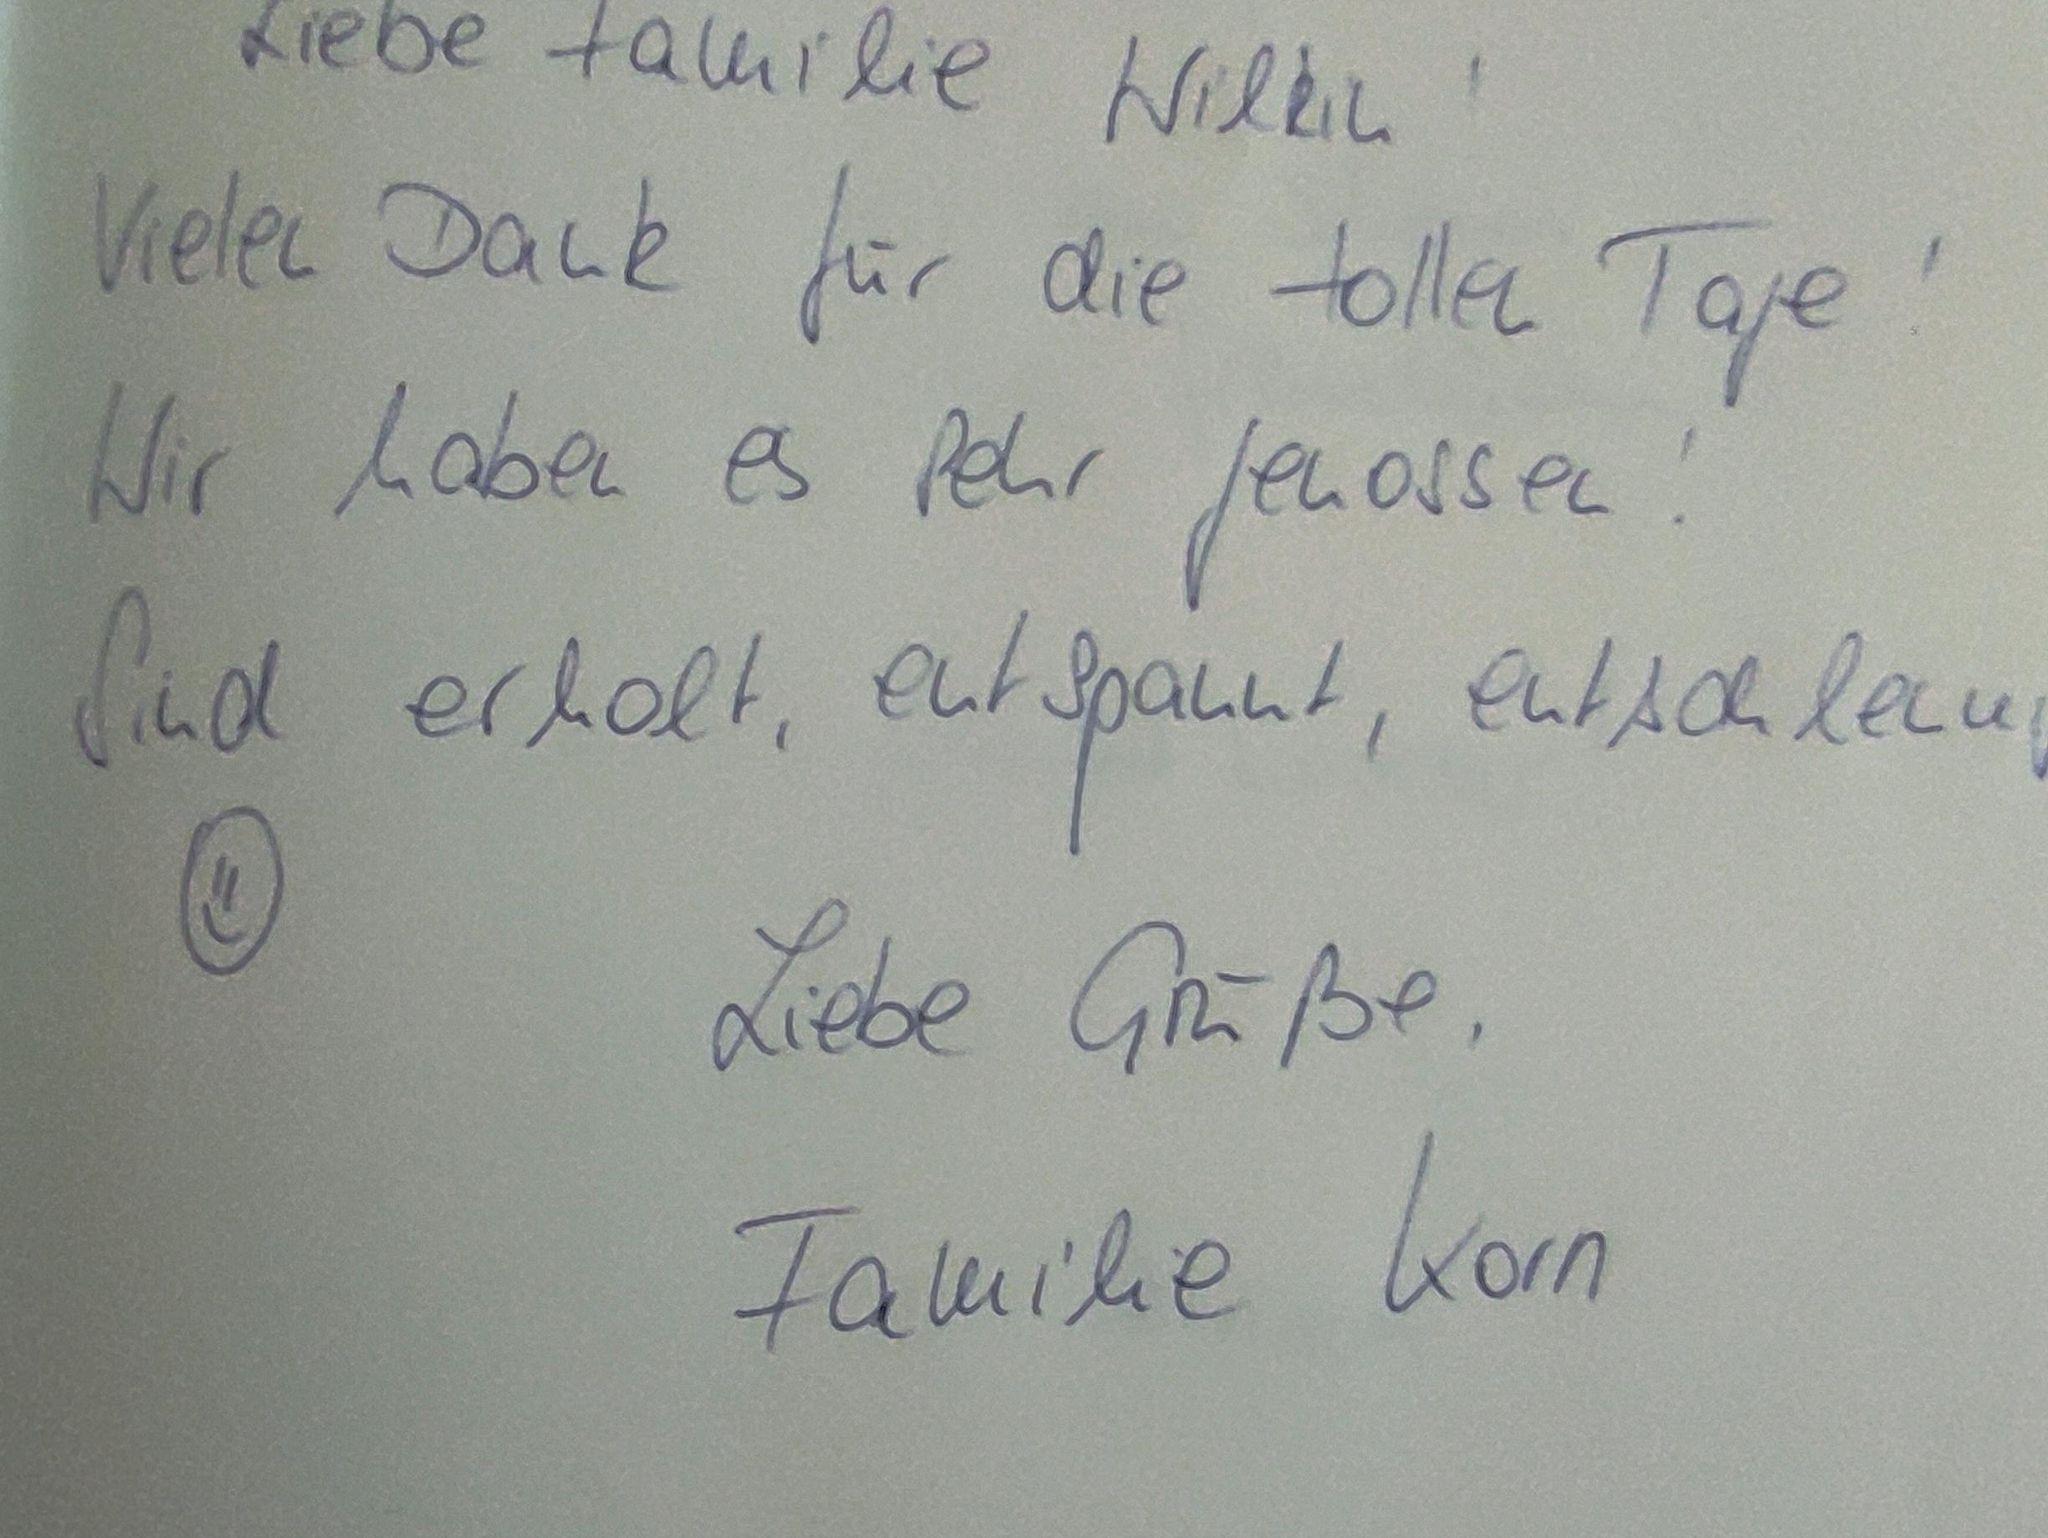 Liebe Familie Wilkin!
Vielen Dank für die tollen Tage!
Wir haben es sehr genossen!
Sind erholt, entspannt,
Liebe Grüße,
Familie Korn